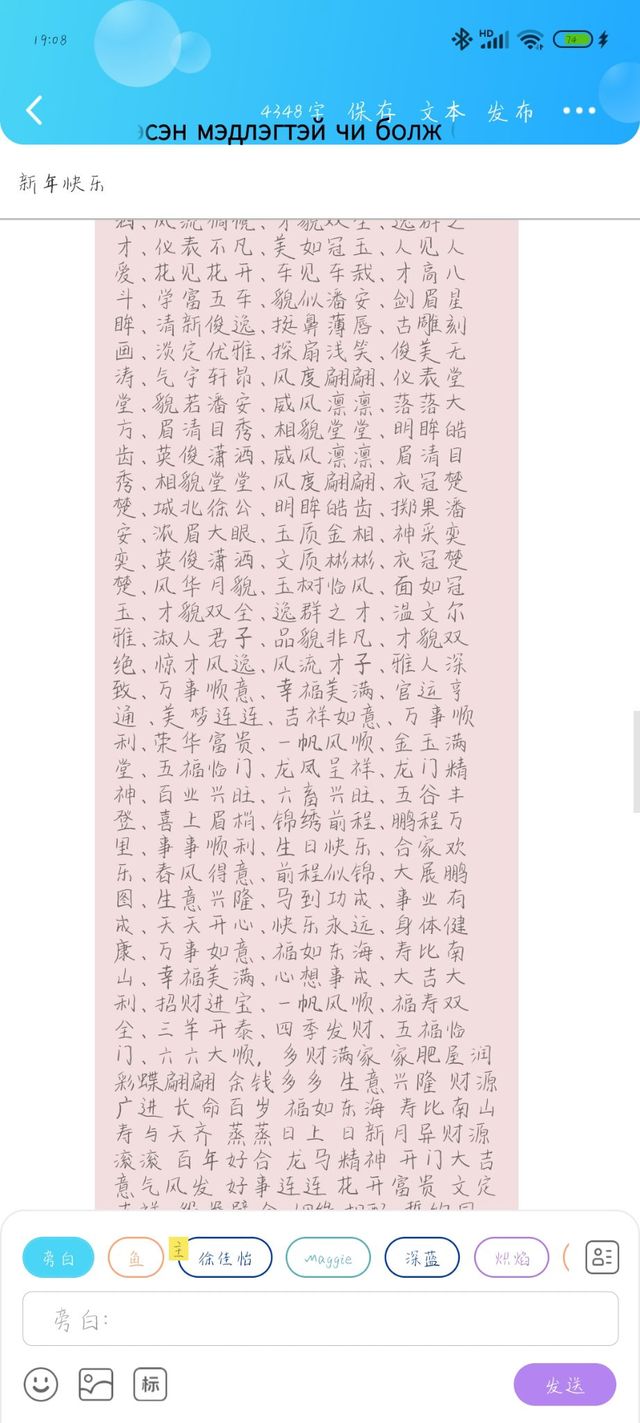 19:08
HD
74
4348字 保存 文本 发布
эсэн мэдлэгтэй чи болж
新年快乐
洒、风流倜傥、才貌双全、逸群之
才、仪表不凡、美如冠玉、人见人
爱、花见花开、车见车栽、才高八
斗、学富五车、貌似潘安、剑眉星
眸、清新俊逸、挺鼻薄唇、古雕刻
画、淡定优雅、探扇浅笑、俊美无
涛、气宇轩昂、风度翩翩、仪表堂
堂、貌若潘安、威风凛凛、落落大
方、眉清目秀、相貌堂堂、明眸皓
齿、英俊潇洒、威风凛凛、眉清目
秀、相貌堂堂、风度翩翩、衣冠楚
楚、城北徐公、明眸皓齿、掷果潘
安、浓眉大眼、玉质金相、神采奕
奕、英俊潇洒、文质彬彬、衣冠楚
楚、风华月貌、玉树临风、面如冠
玉、才貌双全、逸群之才、温文尔
雅、淑人君子、品貌非凡、才貌双
绝、惊才风逸、风流才子、雅人深
致、万事顺意、幸福美满、官运亨
通、美梦连连、吉祥如意、万事顺
利、荣华富贵、一帆风顺、金玉满
堂、五福临门、龙凤呈祥、龙门精
神、百业兴旺、六畜兴旺、五谷丰
登、喜上眉梢、锦绣前程、鹏程万
里、事事顺利、生日快乐、合家欢
乐、春风得意、前程似锦、大展鹏
图、生意兴隆、马到功成、事业有
成、天天开心、快乐永远、身体健
康、万事如意、福如东海、寿比南
山、幸福美满、心想事成、大吉大
利、招财进宝、一帆风顺、福寿双
全、三羊开泰、四季发财、五福临
门、六六大顺，多财满家 家肥屋润
彩蝶翩翩 余钱多多 生意兴隆 财源
广进 长命百岁 福如东海 寿比南山
寿与天齐 蒸蒸日上 日新月异财源
滚滚 百年好合 龙马精神 开门大吉
意气风发 好事连连 花开富贵 文定
旁白 鱼 主 徐佳怡 Maggie 深蓝 炽焰
旁白:
标 发送